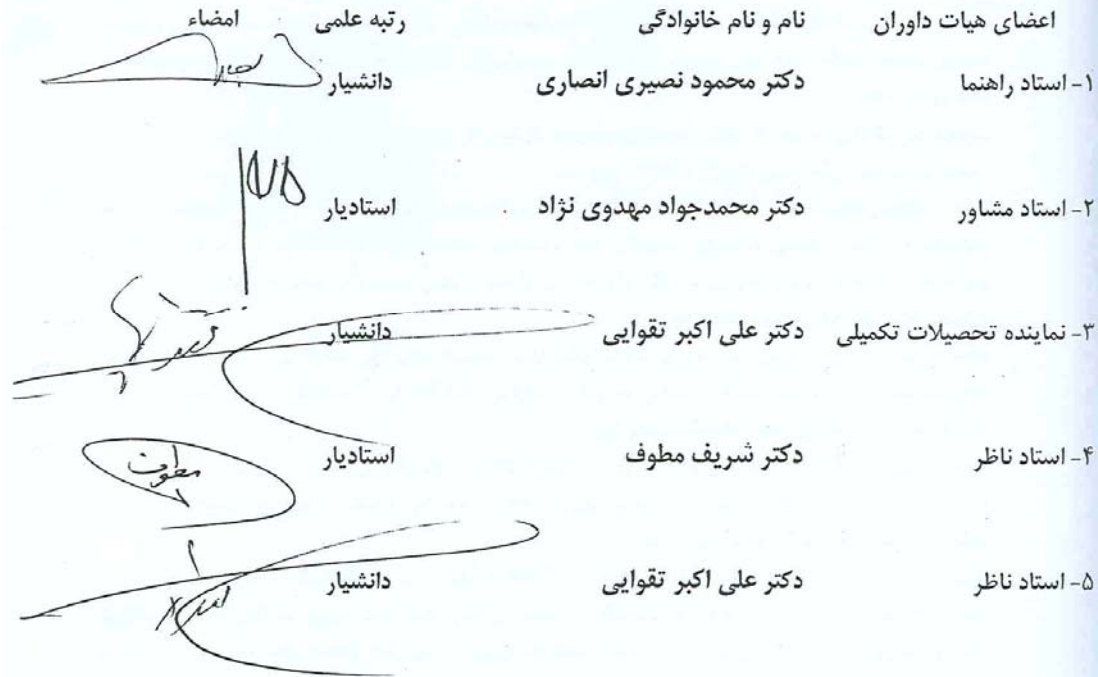 اعضای هیات داوران نام و نام خانوادگی رتبه علمی امضاء
۱- استاد راهنما دکتر محمود نصیری انصاری دانشیار
۲- استاد مشاور دکتر محمدجواد مهدوی نژاد استادیار
۳- نماینده تحصیلات تکمیلی دکتر علی اکبر تقوایی دانشیار
۴- استاد ناظر دکتر شریف مطوف استادیار
مطوف
۵- استاد ناظر دکتر علی اکبر تقوایی دانشیار